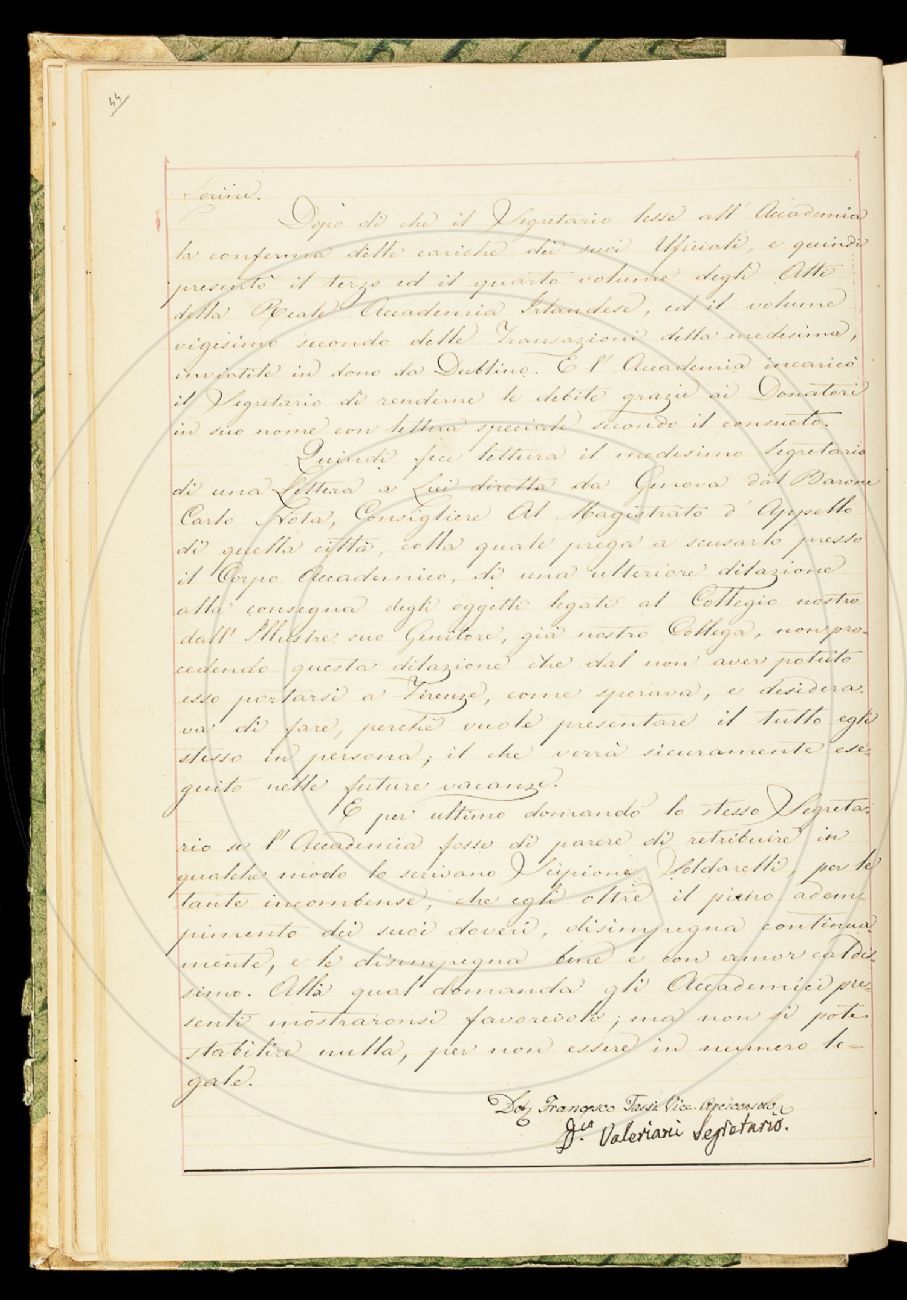 44
Lerini.
Dopo di che il Segretario lesse all' Accademia
la conferma delle cariche dei suoi Ufficiali, e quindi
presentò il terzo ed il quarto volume degli Atti
della Reale Accademia Irlandese, ed il volume
vigesimo secondo delle Transazioni della medesima,
inviatile in dono da Dublino. E l' Accademia incaricò
il Segretario di renderne le debite grazie ai Donatori
in suo nome con lettera speciale secondo il consueto.
Quindi fece lettura il medesimo Segretario
di una Lettera a Lui diretta da Genova dal Barone
Carlo Nota, Consigliere Al Magistrato d' Appello
di quella città, colla quale prega a scusarlo presso
il Corpo Accademico, di una ulteriore dilazione
alla consegna degli oggetti legati al Collegio nostro
dall' Illustre suo Genitore, già nostro Collega, non pro-
cedendo questa dilazione che dal non aver potuto
esso portarsi a Firenze, come sperava, e desidera-
va di fare, perchè vuole presentare il tutto egli
stesso in persona; il che verrà sicuramente ese-
guito nelle future vacanze.
E per ultimo domandò lo stesso Segreta-
rio se l' Accademia fosse di parere di retribuire in
qualche modo lo scrivano Scipione Soldarelli, per le
tante incombense, che egli oltre il pieno adem-
pimento dei suoi doveri, disimpegna continua-
mente, e le disimpegna bene e con amor caldis-
simo. Alla qual domanda gli Accademici pre-
senti mostraronsi favorevoli; ma non si potè
stabilire nulla, per non essere in numero le-
gale.
Dott Francesco Tassi Vice-Arciconsolo
D.re Valeriani Segretario.